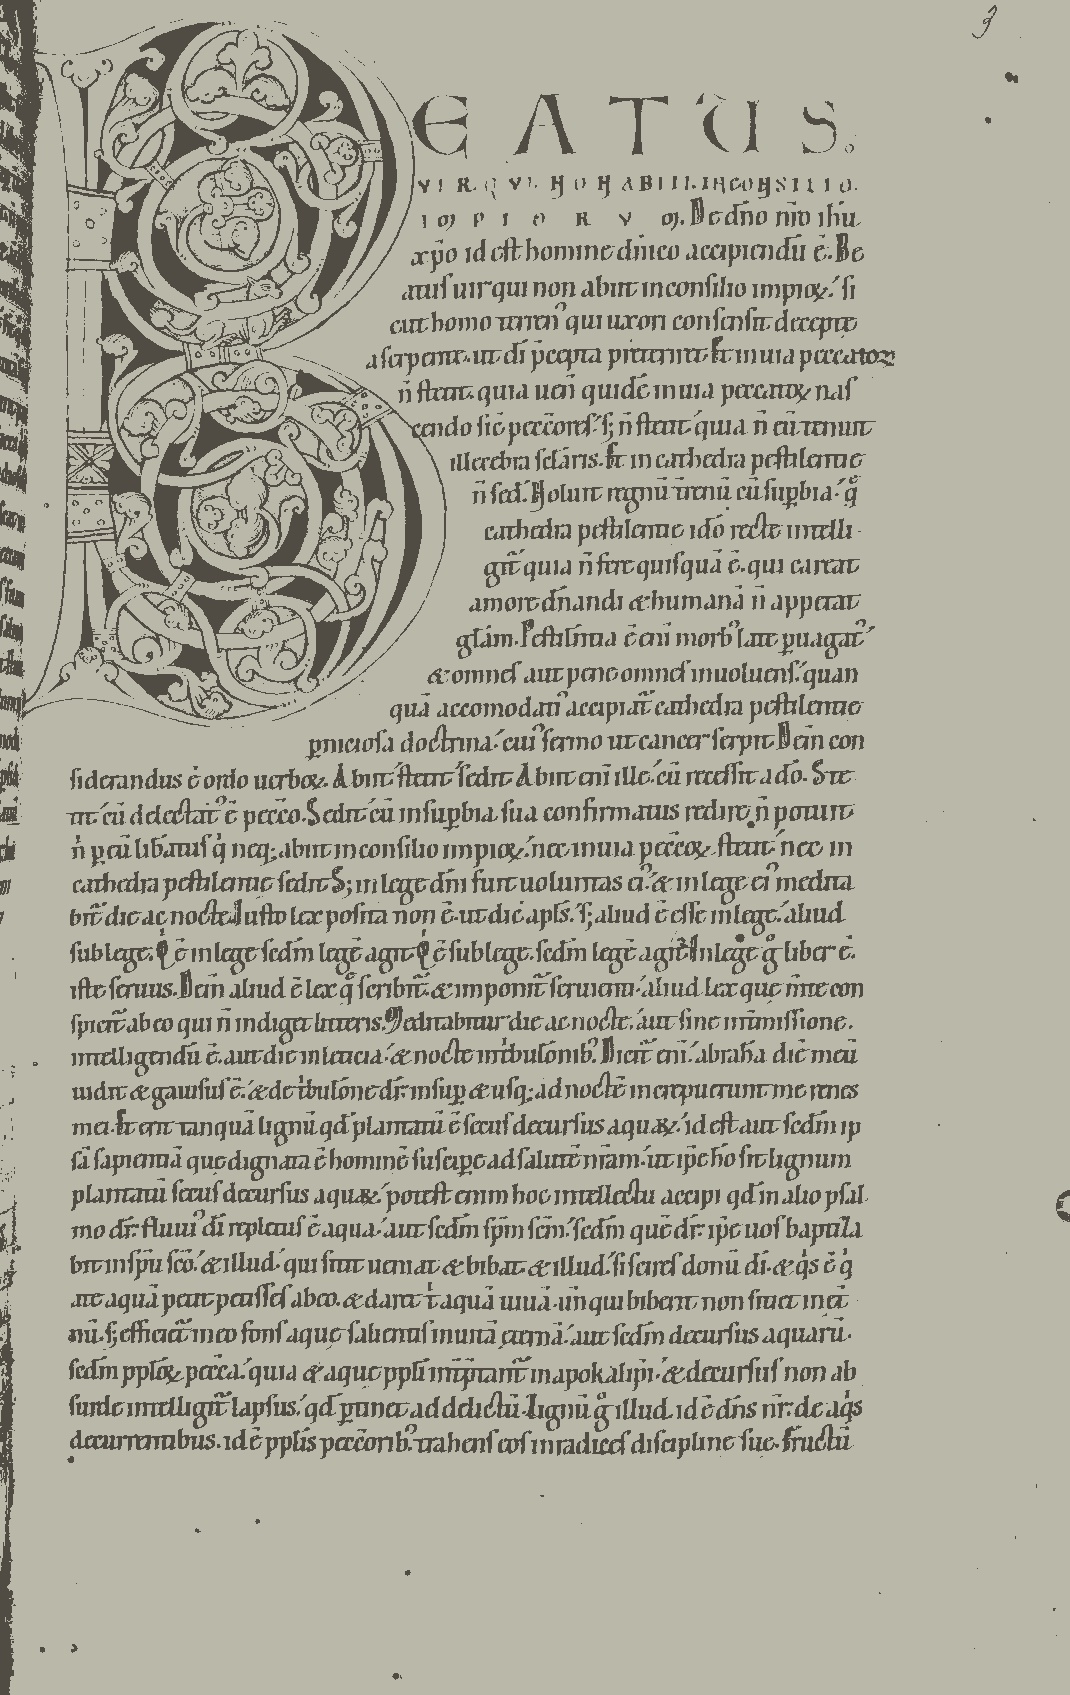 3
BEATUS.
VIR. QVI. NON ABIIT. IN CONSILIO.
IMPIORVM. De dn̄o nr̄o ih̄u
xp̄o id est homine dn̄ico accipiendū ē. Be
atus uir qui non abiit in consilio impioꝝ. si
cut homo terren᷒ qui uxori consensit decepte
a serpente. ut dī p̄cepta p̄teriret. Et in uia peccatoꝝ
n̄ stetit. quia uen̄ quidē in uia peccatoꝝ nas
cendo sic̄ pecc̄ores. s; n̄ stetit quia n̄ eū tenuit
illecebra sc̄laris. Et in cathedra pestilentie
n̄ sed̄. Noluit regnū t̄renū cū suꝑbia. qͦ
cathedra pestilentie idō recte intelli
git᷒ quia n̄ fere quisquā ē. qui careat
amore dn̄andi & humanā n̄ appetat
gl̄am. Pestiln̄tia ē eni morb᷒ late ꝑuagat᷒
& omnes aut pene omnes inuoluens. quan
quā accomodati᷒ accipiat᷒ cathedra pestilentie
ꝑniciosa doctrina. cui᷒ sermo ut cancer serpit. Dein con
siderandus ē ordo uerboꝝ. Abiit. stetit. sedit. Abiit eni ille. cū recessit a dō. Ste
tit. cū delectat᷒ ē pecc̄o. Sedit. cū in suꝑbia sua confirmatus redire n̄ potuit
n̄ ꝑ eū lib̄atus qi neq; abiit in consilio impioꝝ. nec in uia pecc̄oꝝ stetit. nec in
cathedra pestilentie sedit. S; in lege dn̄i fuit uoluntas ei᷒. & in lege ei᷒ medita
bit᷒ die ac nocte. Iusto lex posita non ē. ut dic̄ apl̄s. s; aliud ē esse in lege. aliud
sub lege. Qi ē in lege sedm̄ legē agit. Qi ē sub lege. sedm̄ legē agit᷒. In lege gͦ liber ē.
iste seruus. Dein aliud ē lex qͦ scribit᷒ & imponit᷒ seruienti. aliud lex que m̄te con
spicit᷒ ab eo qui n̄ indiget litteris. Meditabitur die ac nocte. aut sine int̄missione.
intelligendū ē. aut die in leticia. & nocte in t̄bulōnib᷒. Dicit᷒ eni. abrahā diē meū
uidit & gauisus ē. & de t̄bulōne dr̄. insuꝑ & usq; ad noctē increpuerunt me renes
mei. Et erit tanquā lignū qd̄ plantatū ē secus decursus aquaꝝ. id est aut sedm̄ ip
sā sapientiā que dignata ē hominē susciꝑe ad salutē nr̄am. ut ip̄e hō sit lignum
plantatū secus decursus aquaꝝ. potest enim hoc intellectu accipi qd̄ in alio psal
mo dr̄. fluui᷒ dī repletus ē aqua. aut sedm̄ sp̄m sc̄m. sedm̄ quē dr̄. ip̄e uos baptiza
bit in sp̄u sc̄o. & illud. qui sitit ueniat & bibat. & illud. si scires donū dī. & qis ē qi
a te aquā petit petisses ab eo. & daret t̄ aquā uiuā. un̄ qui biberit non sitiet in et̄
nū. s; efficiet᷒ in eo fons aque salientis in uitā eternā. aut sedm̄ decursus aquarū.
sedm̄ pploꝝ pecc̄a. quia & aque ppl̄i int̄p̄tant᷒ in apokalipi. & decursus non ab
surde intelligit᷒ lapsus. qd̄ ꝑtinet ad delictū. Lignū gͦ illud. id ē dn̄s nr̄. de aqis
decurrentibus. id ē ppl̄is pecc̄orib᷒. trahens eos in radices discipline sue. Fructū